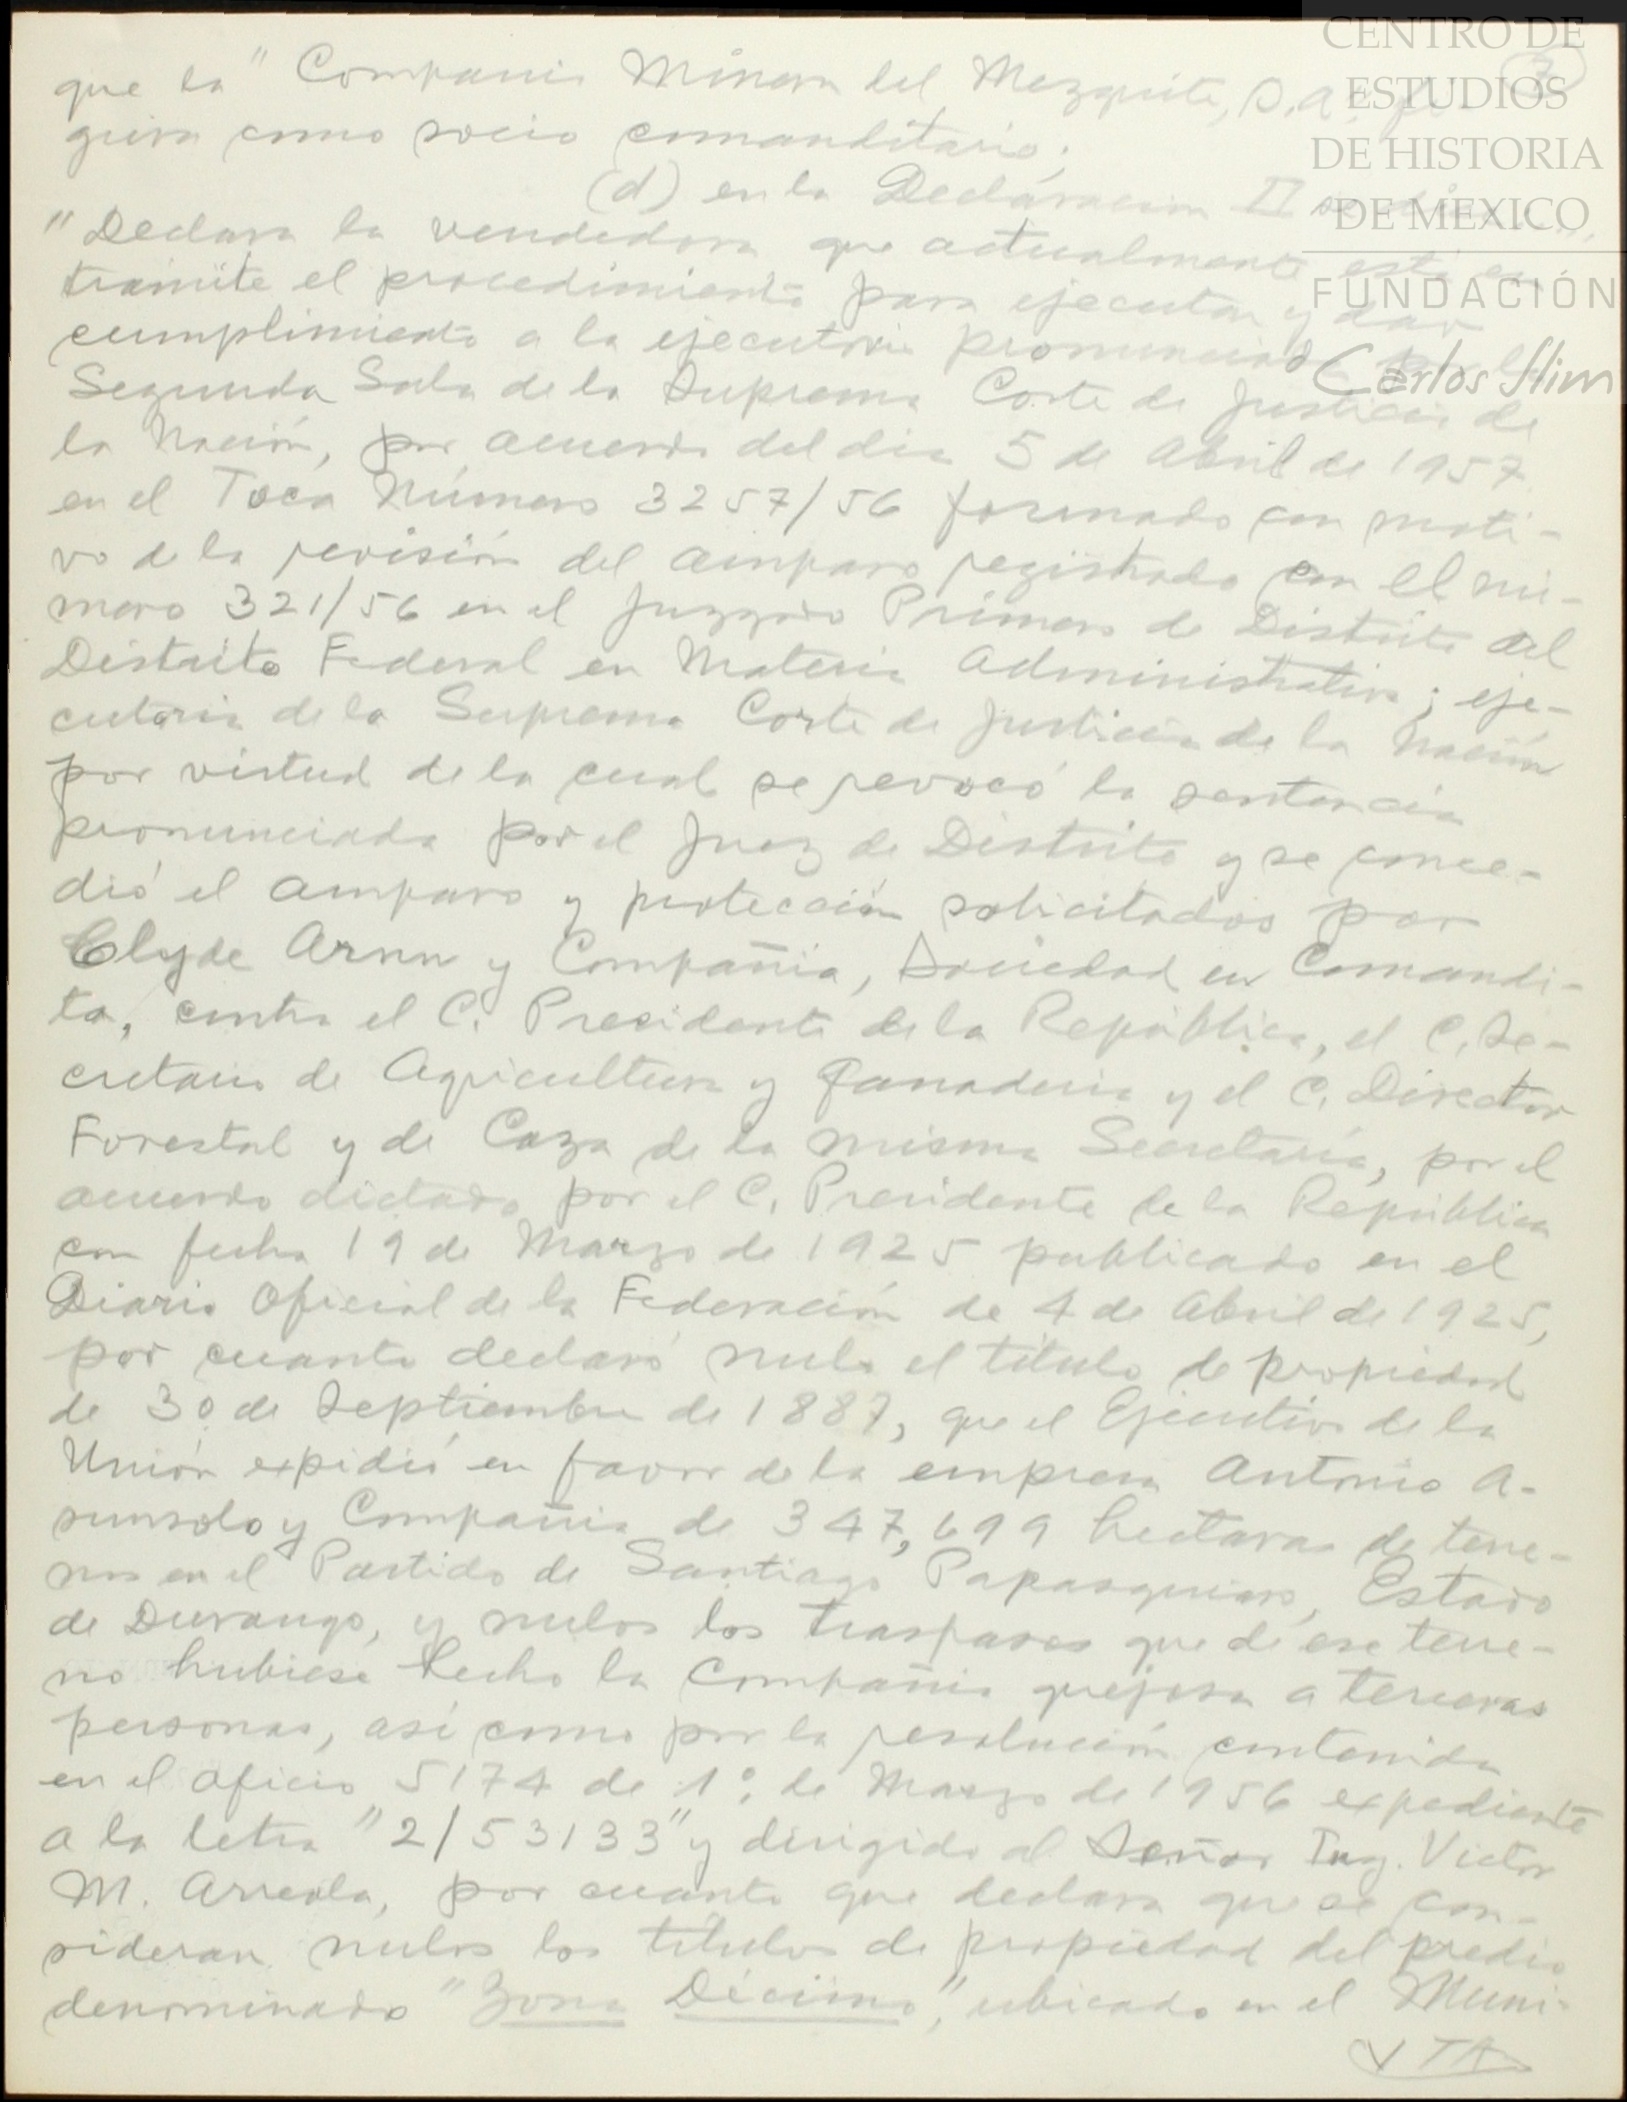 CENTRO DE
ESTUDIOS
DE HISTORIA
DE MEXICO
FUNDACIÓN
Carlos Slim
que la "Compañia Minera del Mezquite, S.A."
gura como socio comanditario;
(d) en la Declaracion II
"Declara la vendedora que actualmente está en
tramite el procedimiento para ejecutar y dar
cumplimiento a la ejecutoria pronunciada por la
Segunda Sala de la Suprema Corte de Justicia de
la Nación, por acuerdo del dia 5 de Abril de 1957
en el Toca Número 3257/56 formado con moti-
vo de la revisión del amparo registrado con el nú-
mero 321/56 en el Juzgado Primero de Distrito del
Distrito Federal en Materia Administrativa; eje-
cutoria de la Suprema Corte de Justicia de la Nación
por virtud de la cual se revocó la sentencia
pronunciada por el Juez de Distrito y se conce-
dió el amparo y protección solicitados por
Clyde Arnn y Compañia, Sociedad en Comandi-
ta, contra el C. Presidente de la República, el C. Se-
cretario de Agricultura y Ganaderia y el C. Director
Forestal y de Caza de la misma Secretaría, por el
acuerdo dictado por el C. Presidente de la República
con fecha 19 de Marzo de 1925 publicado en el
Diario Oficial de la Federación de 4 de Abril de 1925,
por cuanto declaró nulo el título de propiedad
de 30 de Septiembre de 1887, que el Ejecutivo de la
Unión expidió en favor de la empresa Antonio A-
sunsolo y Compañia de 347,699 hectaras de terre-
nos en el Partido de Santiago Papasquiaro, Estado
de Durango, y nulos los traspasos que de ese terre-
no hubiese hecho la Compañia quejosa a terceras
personas, así como por la resolución contenida
en el oficio 5174 de 1° de Marzo de 1956 expediente
a la letra "2/53133" y dirigido al Señor Ing. Victor
M. Arreola, por cuanto que declara que se con-
sideran nulos los títulos de propiedad del predio
denominado "Zona Décima", ubicado en el Muni-
VTA